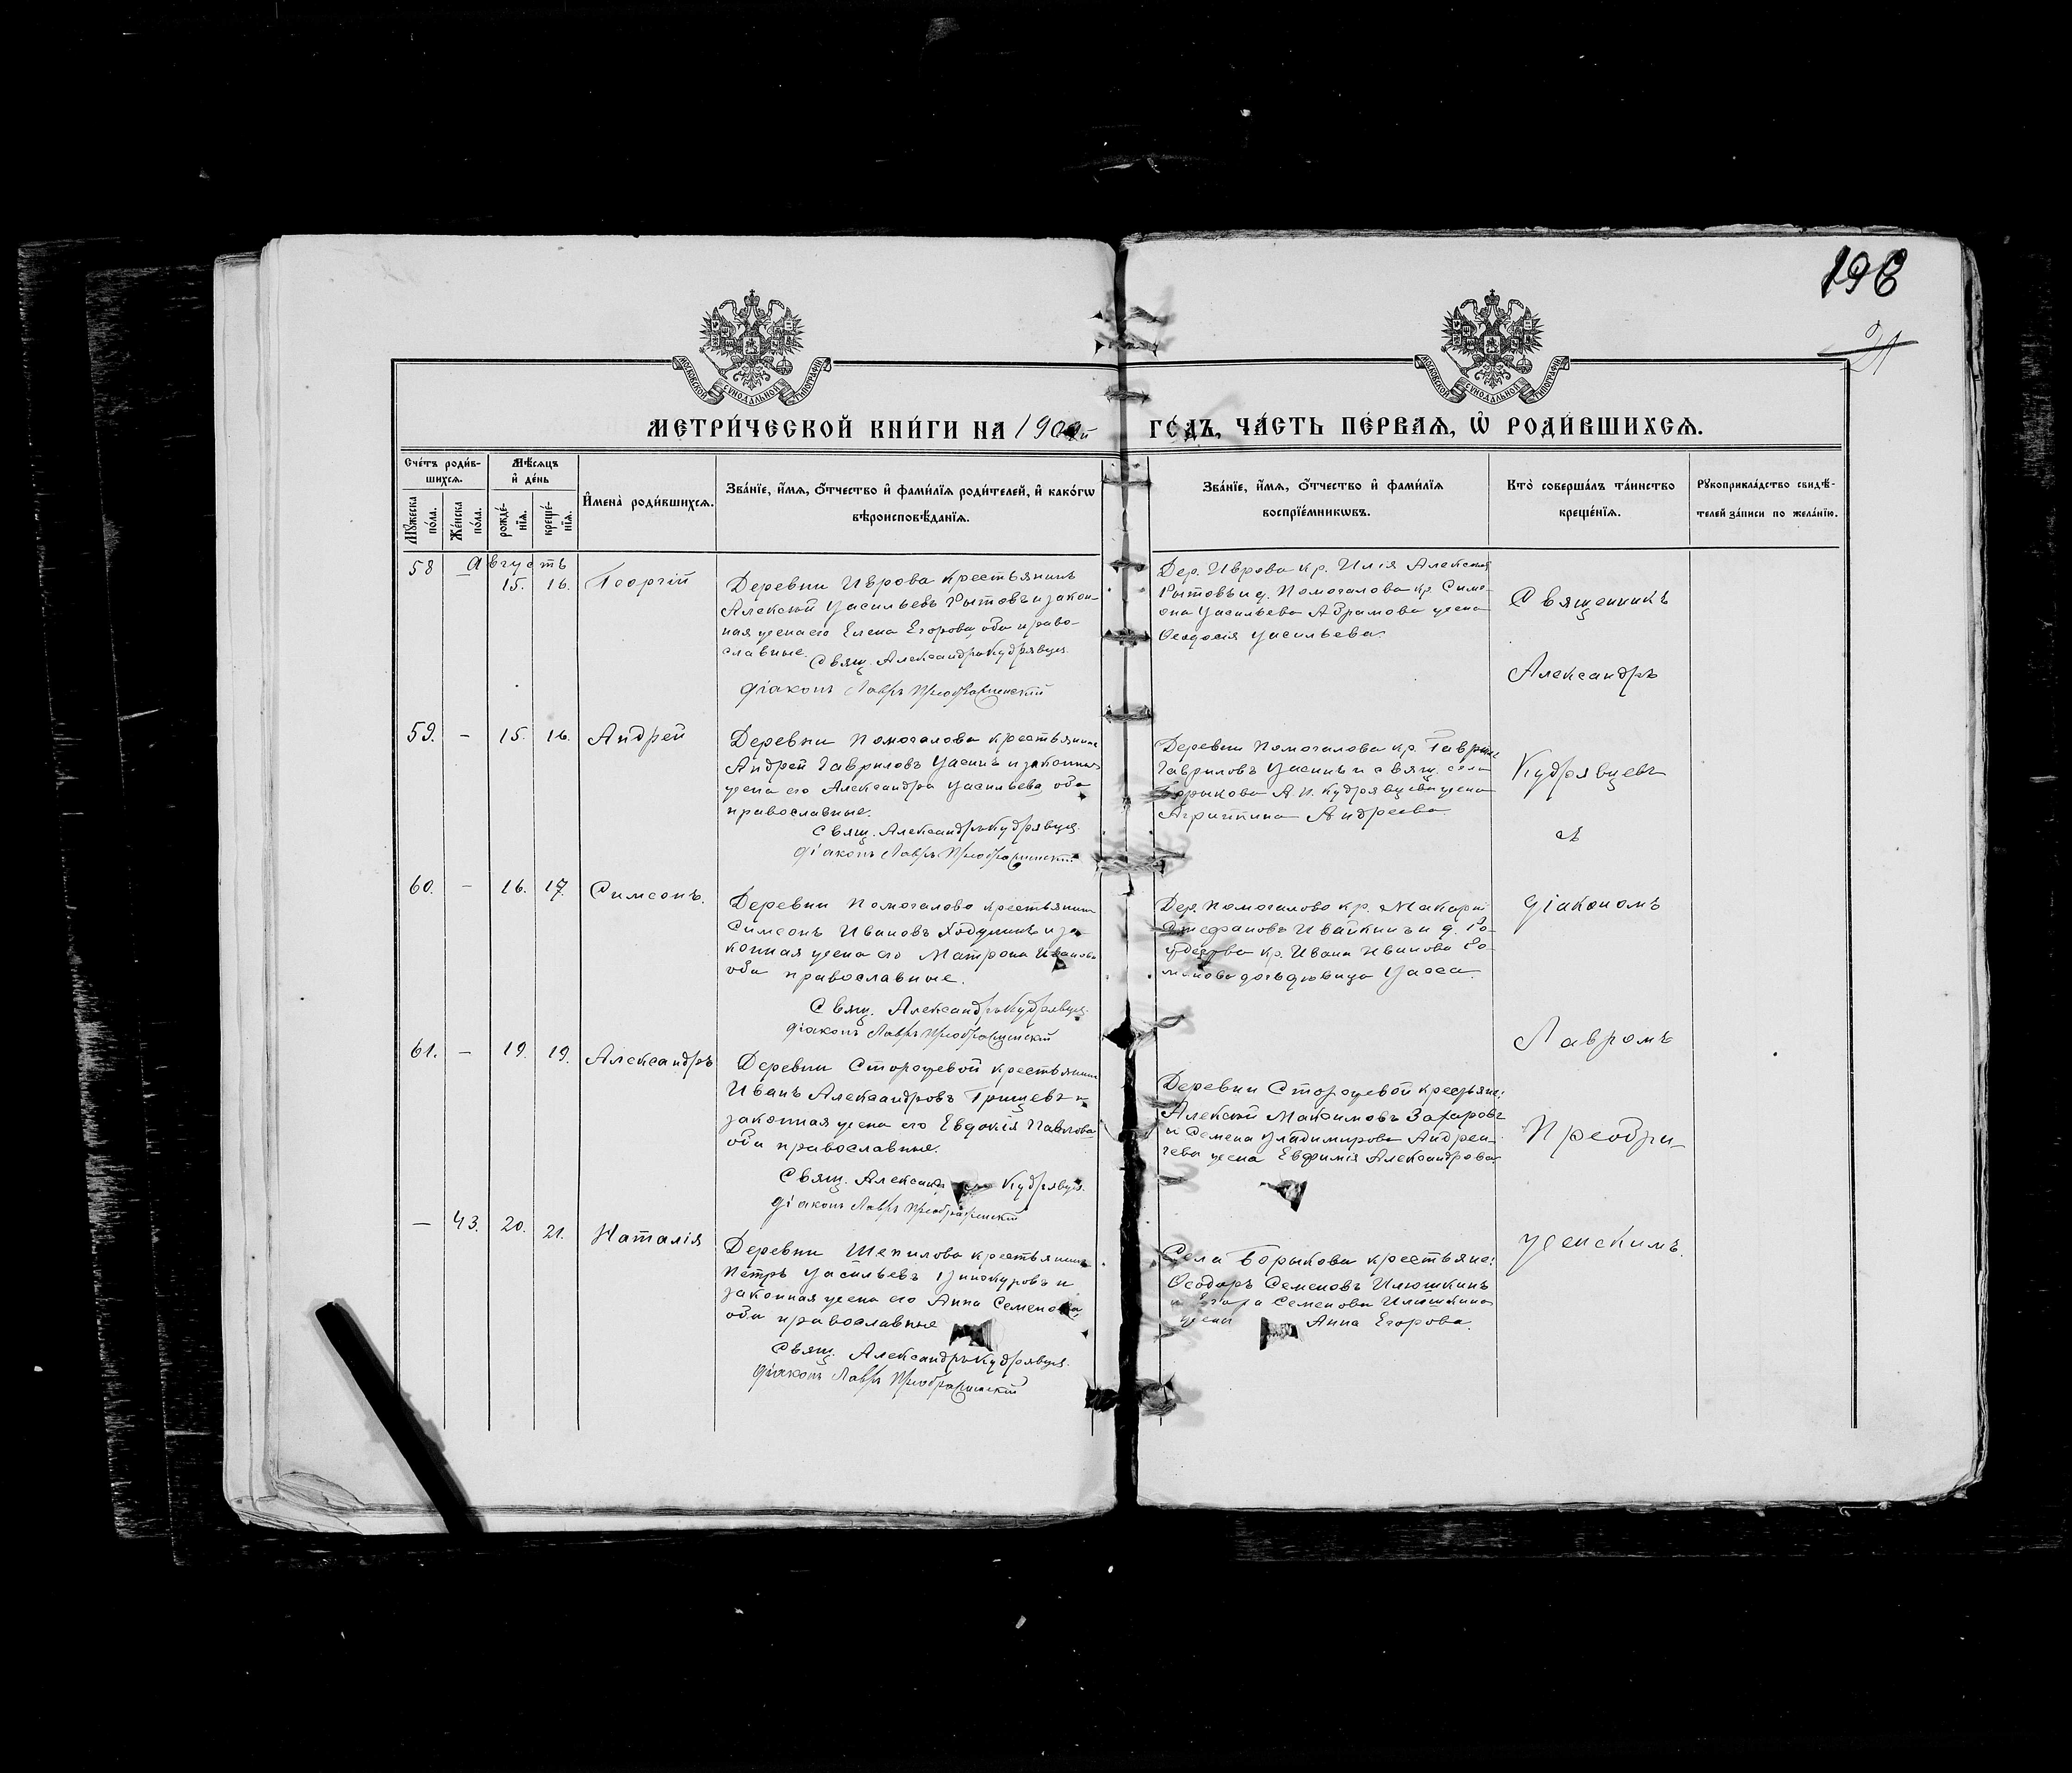 198
21
МОСКОВСКОЙ СУНОДАЛЬНОЙ ТИПОГРАФІИ
МОСКОВСКОЙ СУНОДАЛЬНОЙ ТИПОГРАФІИ
МЕТРИ́ЧЕСКОЙ КНИ́ГИ НА 190 й ГО́ДЪ, ЧА́СТЬ ПЕ́РВАѦ, Ѡ҆ РОДИ́ВШИХСѦ.
Сче́тъ роди́в-
шихсѧ.
Мꙋ́жеска
по́ла.
Же́нска
по́ла.
Мѣ́сѧцъ
и҆ де́нь
рожде́-
нїѧ.
креще́-
нїѧ.
И҆мена̀ роди́вшихсѧ.
Зва́нїе, и҆́мѧ, ѻ҆́тчество и҆ фами́лїѧ роди́телей, и҆ како́гѡ
вѣроисповѣ́данїѧ.
Зва́нїе, и҆́мѧ, ѻ҆́тчество и҆ фами́лїѧ
воспрїе́мникѡвъ.
Кто̀ соверша́лъ та́инство
креще́нїѧ.
Рꙋкоприкла́дство свидѣ́-
телей за́писи по жела́нїю.
Августъ
58 15. 16. Георгій
Деревни Иврова крестьянинъ
Алексѣй Васильевъ Рытовъ и закон-
ная жена его Елена Егорова, оба право-
славные.
Свящ. Александръ Кудрявцев
Діаконъ Лавръ Преображенскій
Дер. Иврова кр. Илія Алексѣев
Рытовъ и д. Помогалова кр. Симе-
она Васильева Абрамова жена
Ѳеодосія Васильева.
59. – 15. 16. Андрей
Деревни Помогалова крестьянинъ
Андрей Гавриловъ Уасинъ и законная
жена его Александра Васильева, оба
православные.
Свящ. Александръ Кудрявцев
Діаконъ Лавръ Преображенскій
Деревни Помогалова кр. Гавріилъ
Гавриловъ и свящ. села
Борыкова А. П. Кудрявцева жена
Агриппина Андреева
60. – 16. 17. Симеонъ.
Деревни Помогалова крестьянинъ
Симеонъ Ивановъ и за-
конная жена его Матрона Иванова
оба православные.
Свящ. Александръ Кудрявцев
Діаконъ Лавръ Преображенскій
Дер. Помогалова кр. Макарій
Стефановъ Ивайкинъ и д.
кр. Ивана Иванова
дочь дѣвица Васса.
61. – 19. 19. Александръ
Деревни Сторожевой крестьянинъ
Иванъ Александровъ Грищевъ и
законная жена его Евдокія Павлова
оба православные.
Свящ. Александръ Кудрявцев
Діаконъ Лавръ Преображенскій
Деревни Сторожевой крестьяне:
Алексѣй Максимовъ Захаровъ
и Семена Владимирова
жена Евфимія Александрова.
– 43. 20. 21. Наталія
Деревни Шепилова крестьянинъ
Петръ Васильевъ Винокуровъ и
законная жена его Анна Семенова
оба православные
Свящ. Александръ Кудрявцев
Діаконъ Лавръ Преображенскій
Села Борыкова крестьяне:
Ѳеодоръ Семеновъ Илюшкинъ
и Егора Семенова Илюшкина
жена Анна Егорова.
Священникъ
Александръ
Кудрявцевъ
съ
діакономъ
Лавромъ
Преобра-
женскимъ.